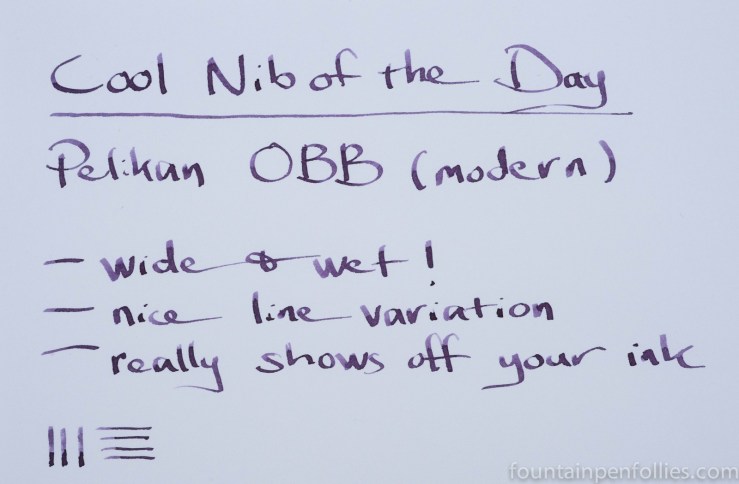 Cool Nib of the Day
Pelikan OBB (modern)
– wide & wet!
– nice line variation
– really shows off your ink
fountainpenfollies.com